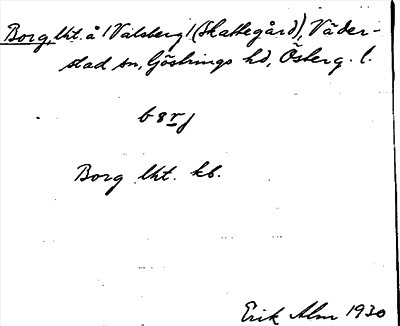 Borg, lht. å 1 Valsberg (Skattegård), Väder-
stad sn, Göstrings hd, Österg. l.
Borg lht. kb.
Erik Alm 1930